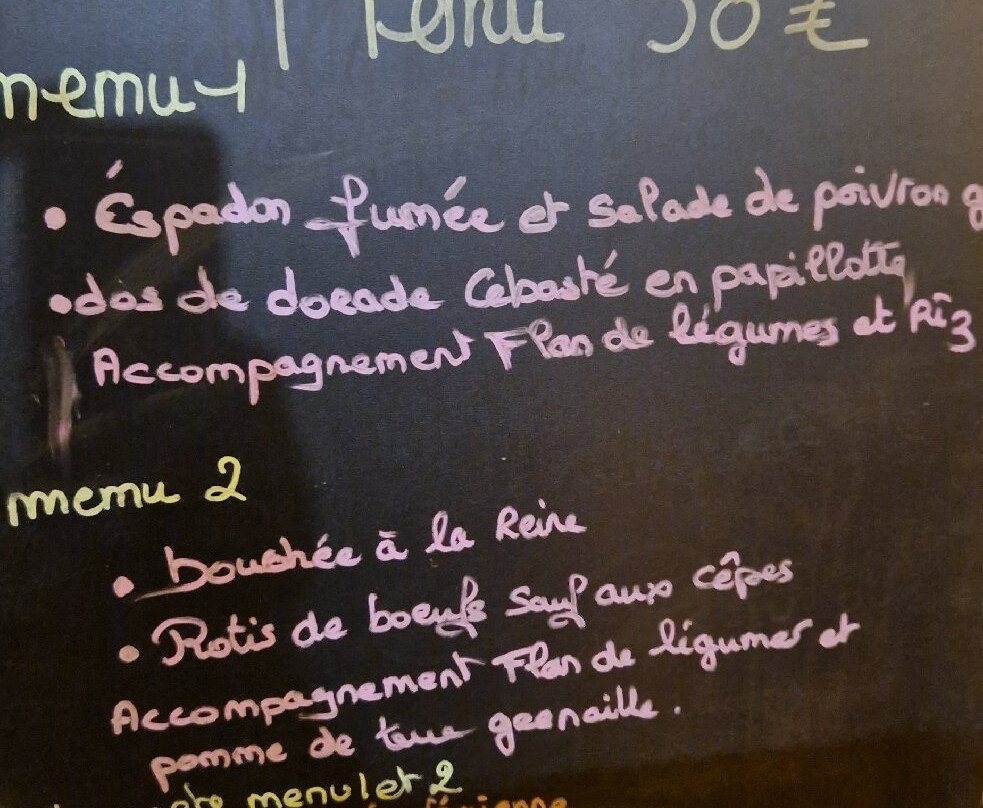 Menu 50 €
memu 1
• Éspadon fumée et salade de poivron g
• dos de dorade Cebasté en papillotte
Accompagnement Flan de légumes et Rîz
memu 2
• Bouchée à la Reine
• Rotis de boeufs Sauf aux cêpes
Accompagnement Flan de légumes et
pomme de terre grenaille.
menu 1 et 2